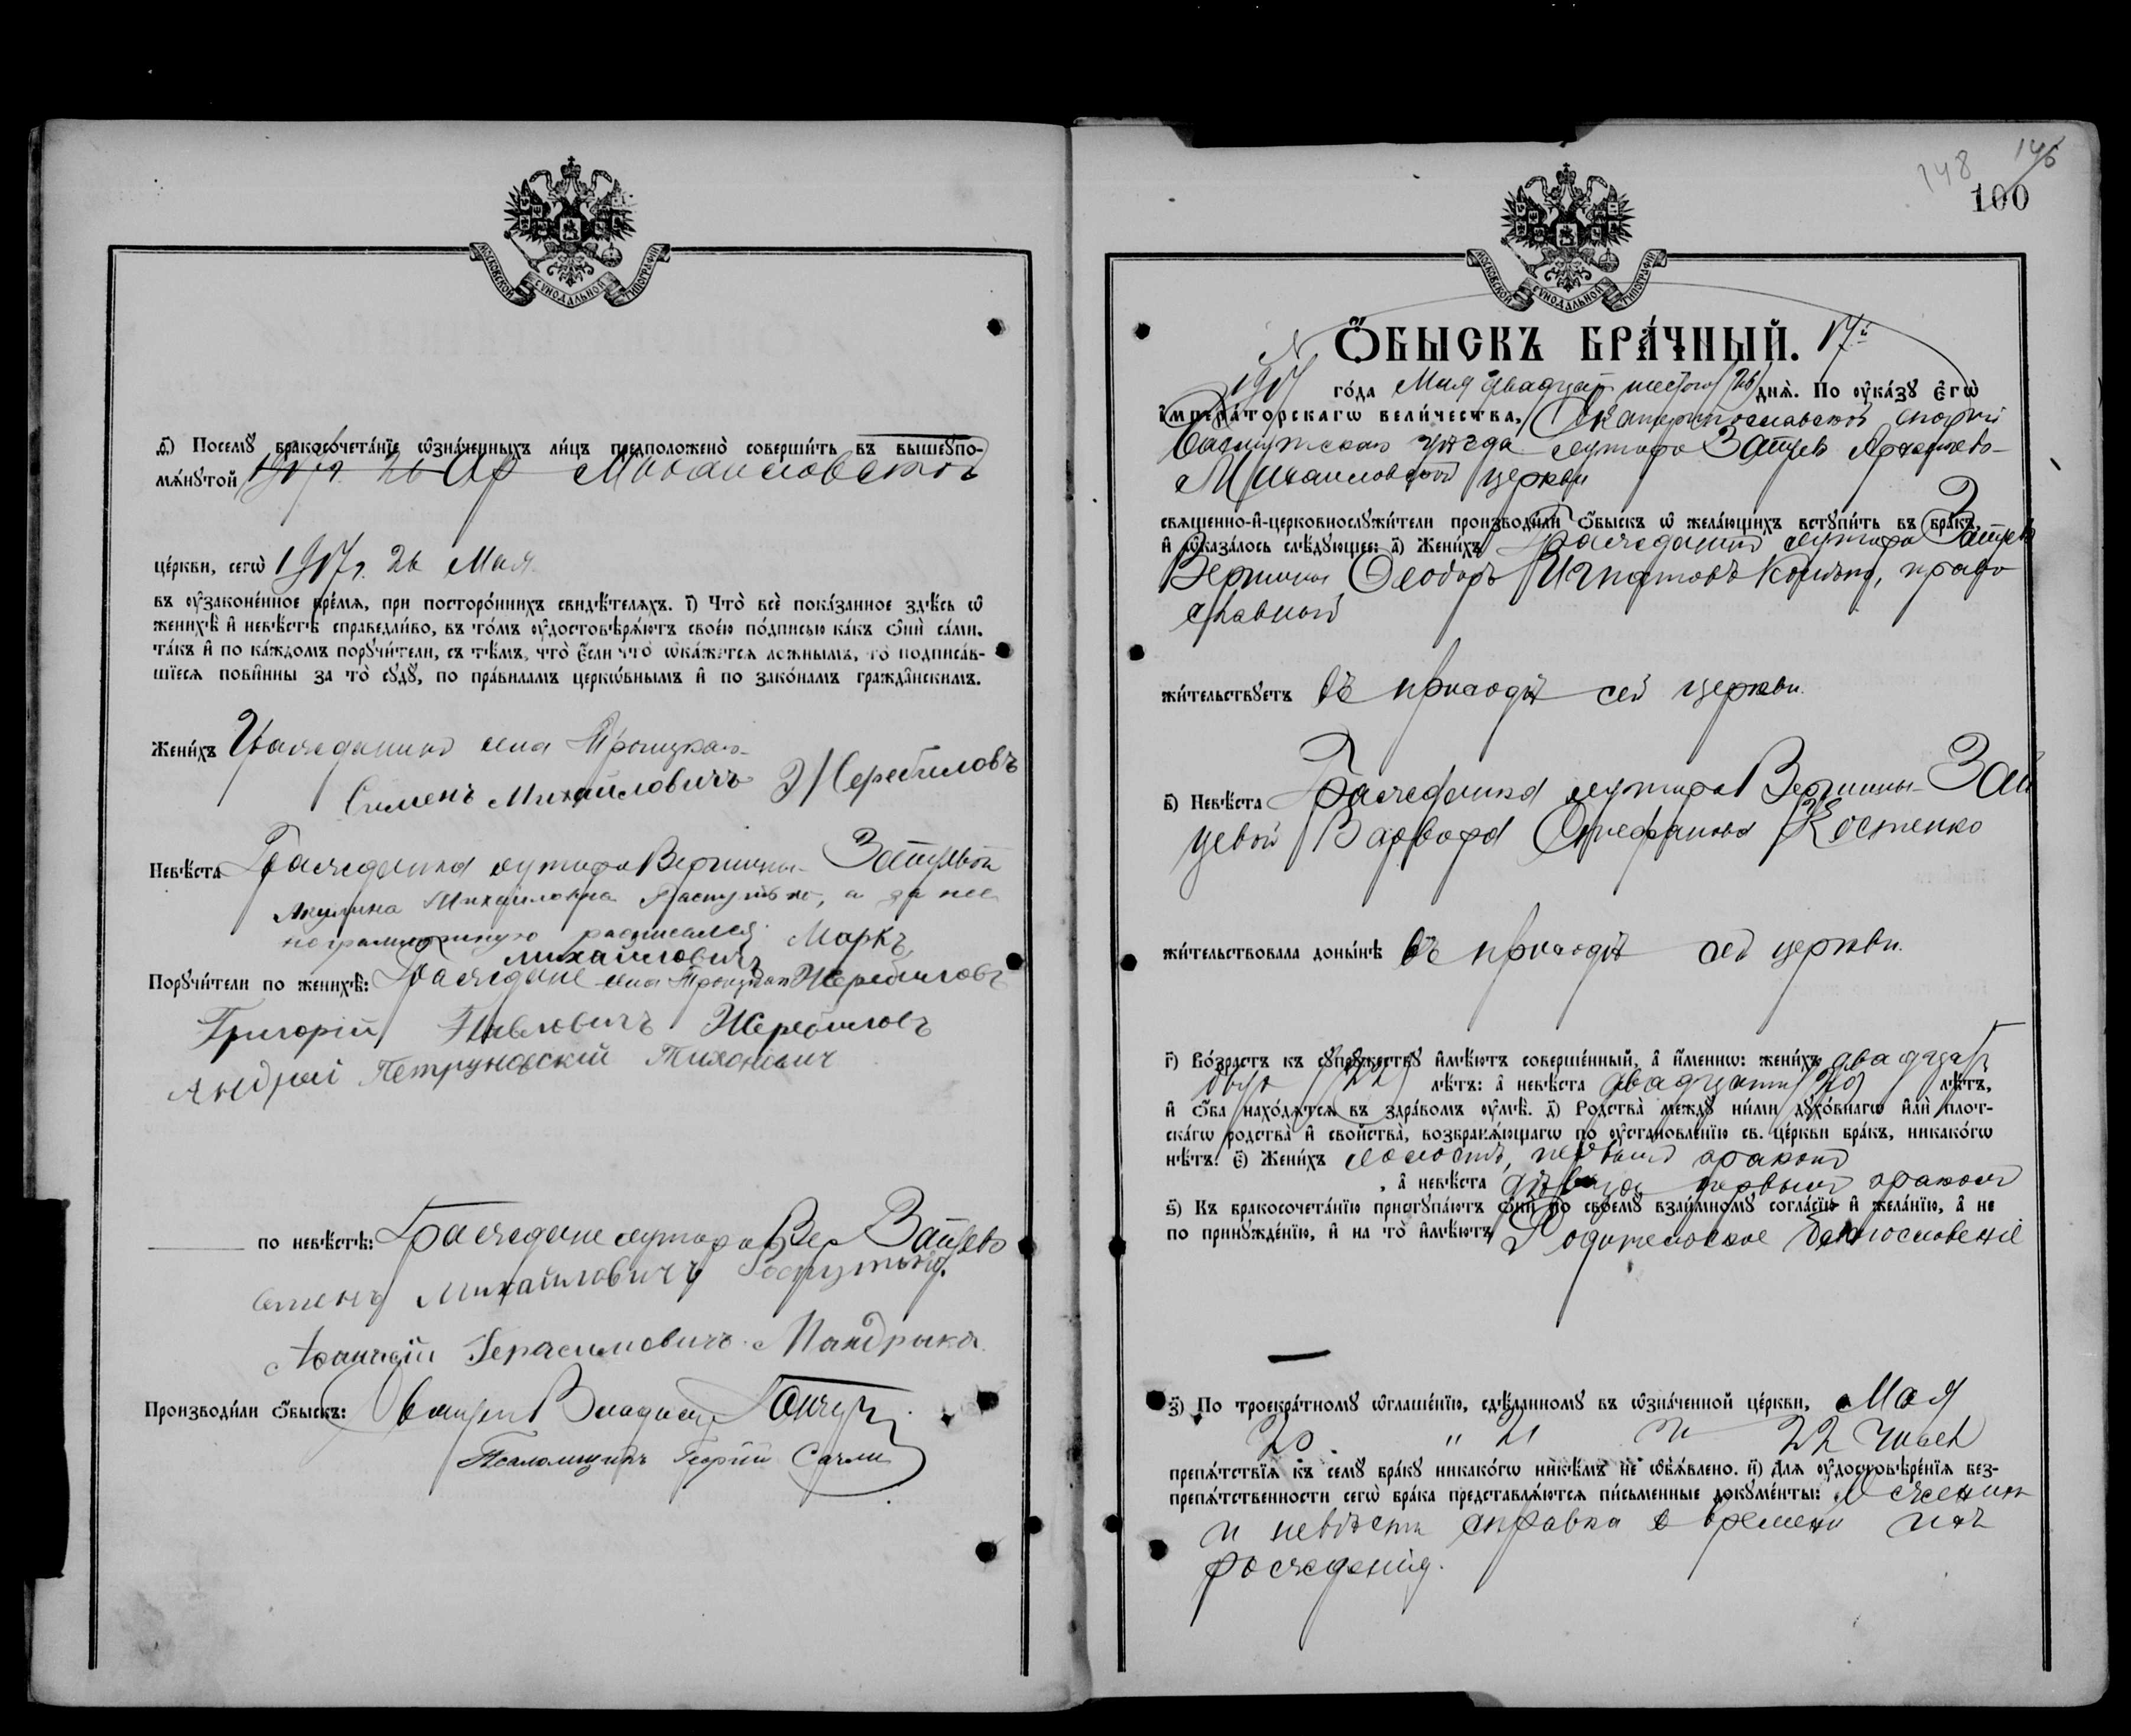 МОСКОВСКОЙ СѴНОДАЛЬНОЙ ТИПОГРАФІИ
д҃) Посемꙋ̀ бракосочета́нїе ѡ҆зна́ченныхъ ли́цъ предположено̀ соверши́ть въ вышеꙋпо-
мѧ́нꙋтой 1917 г. 26 Ар Михаиловской
це́ркви, сегѡ̀ 1917 г. 26 Мая
въ ᲂу҆зако́ненное вре́мѧ, при посторо́ннихъ свидѣ́телѧхъ. і҃) Что̀ всѐ пока́занное здѣ́сь ѡ҆
женихѣ̀ и҆ невѣ́стѣ справедли́во, въ то́мъ ᲂу҆достовѣрѧ́ютъ свое́ю по́дписью ка́къ ѻ҆нѝ са́ми,
та́къ и҆ по ка́ждомъ порꙋчи́тели, съ тѣ́мъ, что̀ є҆́сли что̀ ѡ҆ка́жетсѧ ложнымъ, то̀ подписа́в-
шїесѧ пови́нны за то̀ сꙋдꙋ̀, по пра́виламъ церко́внымъ и҆ по зако́намъ гражда́нскимъ.
Жени́хъ Гражданинъ села Троицкаго
Сименъ Михайловичъ Жеребиловъ
Невѣ́ста Гражданка хутора Вершины Зайцевой
Акулина Михайловна, а за нее
неграмотную расписался Маркъ
Михайловичъ
Порꙋчи́тели по женихѣ̀: Граждане села Троицкаго Жеребиловъ
Григорій Павловичъ Жеребиловъ
Андрей Петруновскій Тихонович
по невѣ́стѣ: Граждане хутора Вер Зайцево
Семенъ Михайловичъ
Афанасій Герасимовичъ Мандрыка
Производи́ли ѻ҆́быскъ: Священ Владим
Псаломщикъ Георгій
148 146
100
МОСКОВСКОЙ СѴНОДАЛЬНОЙ ТИПОГРАФІИ
№ Ѻ҆́БЫСКЪ БРА́ЧНЫЙ. 17й
1917 го́да Мая двадцать шестого (26) днѧ̀. По ᲂу҆ка́зꙋ є҆гѡ̀
і҆мпера́торскагѡ вели́чества, Екатеринославской епархіи
Бахмутскаго уѣзда хутора Зайцево Архангело-
Михаиловской церкви
свѧщенно-и҆-церковнослꙋжи́тели производи́ли ѻ҆́быскъ ѡ҆ жела́ющихъ встꙋпи́ть въ бра́къ,
и҆ ѡ҆каза́лось слѣ́дꙋющее: а҃) Жени́хъ Гражданинъ хутора Зайцево
Вершины Ѳеодоръ Игнатовъ, право
славной
жи́тельствꙋетъ въ приходѣ сей церкви.
в҃) Невѣ́ста Гражданка хутора Вершины Зай
цевой Варвара Стефанова Костенко
жи́тельствовала доны́нѣ въ приходѣ сей церкви.
г҃) Во́зрастъ къ сꙋпрꙋ́жествꙋ и҆мѣ́ютъ соверше́нный, а҆ и҆́менно: жени́хъ двадцать
двух (22) лѣ́тъ: а҆ невѣ́ста двадцати (20) лѣ́тъ,
и҆ ѻ҆́ба нахо́дѧтсѧ въ здра́вомъ ᲂу҆мѣ̀. д҃) Родства̀ междꙋ̀ ни́ми дꙋхо́внагѡ и҆лѝ плот-
ска́гѡ родства̀ и҆ свойства̀, возбранѧ́ющагѡ по ᲂу҆становле́нїю св. це́ркви бра́къ, никако́гѡ
нѣ́тъ. є҃) Жени́хъ холостъ, первымъ бракомъ
, а҆ невѣ́ста дѣвица первымъ бракомъ
ѕ҃) Къ бракосочета́нїю пристꙋпа́ютъ ѻ҆нѝ по своемꙋ̀ взаи́мномꙋ согла́сїю и҆ жела́нїю, а҆ не
по принꙋжде́нїю, и҆ на то̀ и҆мѣ́ютъ Родительское благословеніе
з҃) По троекра́тномꙋ ѡ҆глаше́нїю, сдѣ́ланномꙋ въ ѡ҆зна́ченной це́ркви, Мая
20 " 21 и 22 чисел
препѧ́тствїѧ къ семꙋ̀ бра́кꙋ никако́гѡ никѣ́мъ не ѡ҆бъѧ́влено. и҃) Длѧ ᲂу҆достовѣре́нїѧ без-
препѧ́тственности сегѡ̀ бра́ка представлѧ́ютсѧ пи́сьменные докꙋме́нты: О жених
и невѣсте справка о времени ихъ
рожденія.